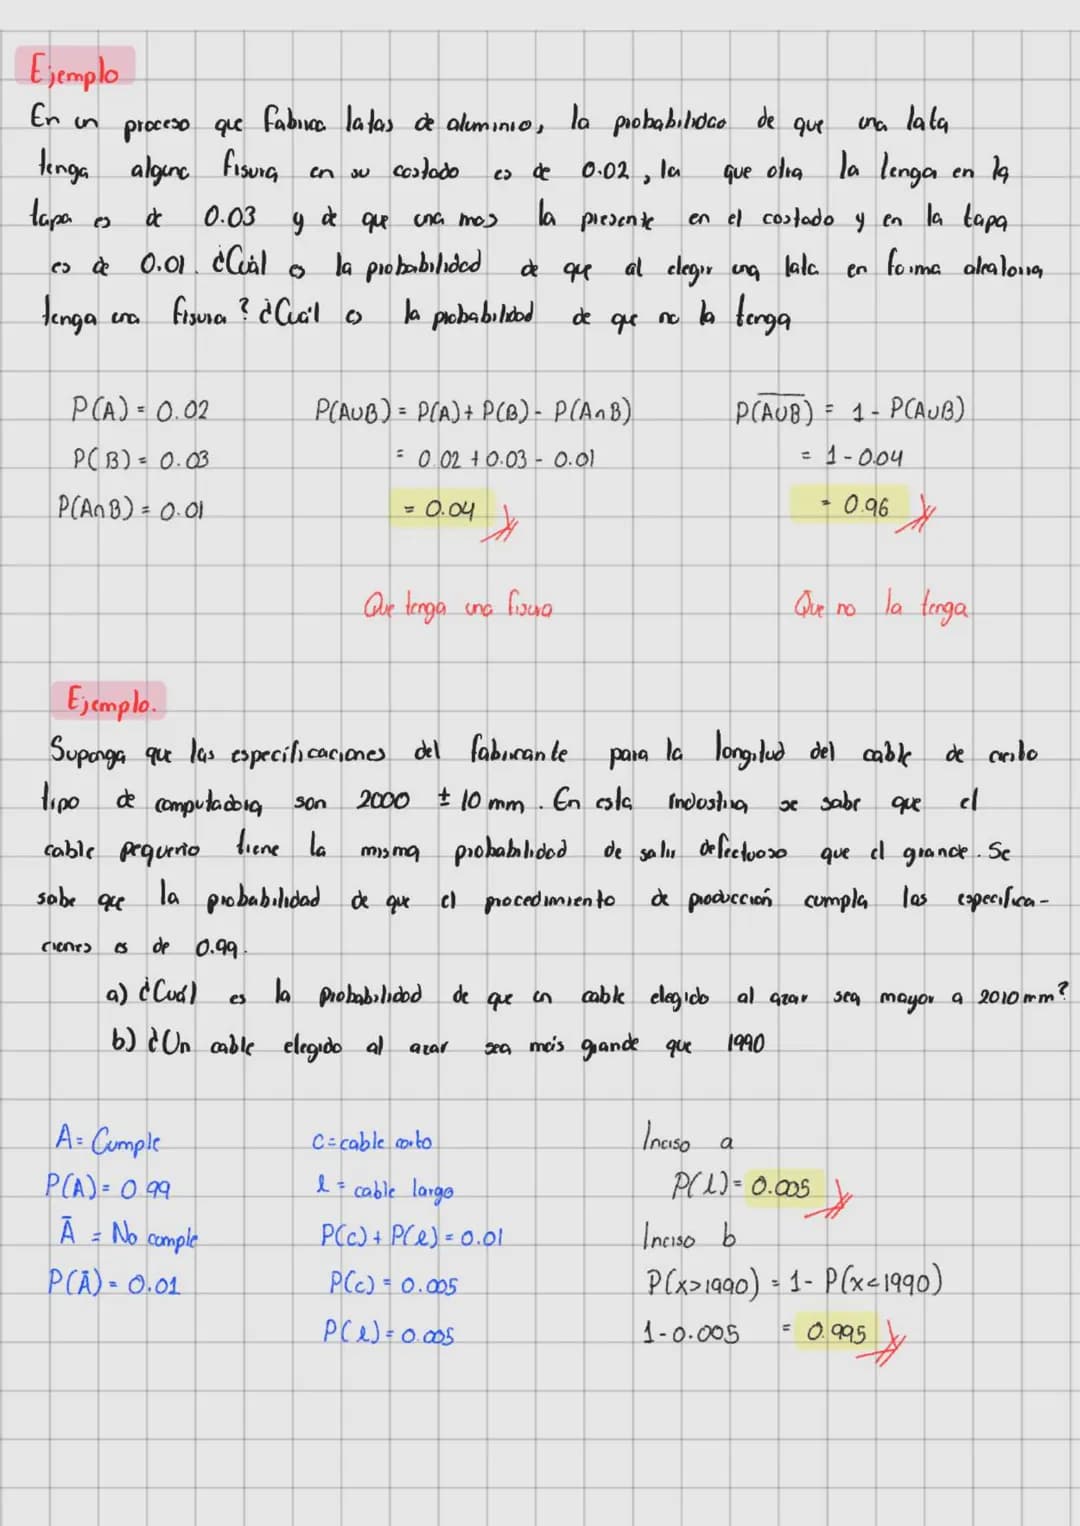 Ejemplo
En un proceso que fabrica latas de aluminio, la probabilidad de que una lata
tenga alguna fisura en su costado es de 0.02, la que otra la tenga en la
tapa es de 0.03 y de que una mas la presente en el costado y en la tapa
es de 0.01. ¿Cuál es la probabilidad de que al elegir una lata en forma aleatoria
tenga una fisura? ¿Cuál es la probabilidad de que no la tenga
P(A) = 0.02
P(B) = 0.03
P(A∩B) = 0.01
P(A∪B) = P(A) + P(B) - P(A∩B)
= 0.02 + 0.03 - 0.01
= 0.04
Que tenga una fisura
P(A̅∪̅B̅) = 1 - P(A∪B)
= 1 - 0.04
= 0.96
Que no la tenga
Ejemplo.
Suponga que las especificaciones del fabricante para la longitud del cable de cierto
tipo de computadora son 2000 ± 10 mm. En esta industria se sabe que el
cable pequeño tiene la misma probabilidad de salir defectuoso que el grande. Se
sabe que la probabilidad de que el procedimiento de producción cumpla las especifica-
ciones es de 0.99.
a) ¿Cuál es la probabilidad de que un cable elegido al azar sea mayor a 2010 mm?
b) ¿Un cable elegido al azar sea más grande que 1990
A = Cumple
P(A) = 0.99
Ā = No cumple
P(Ā) = 0.01
C = cable corto
l = cable largo
P(c) + P(l) = 0.01
P(c) = 0.005
P(l) = 0.005
Inciso a
P(l) = 0.005
Inciso b
P(x>1990) = 1 - P(x<1990)
1 - 0.005 = 0.995